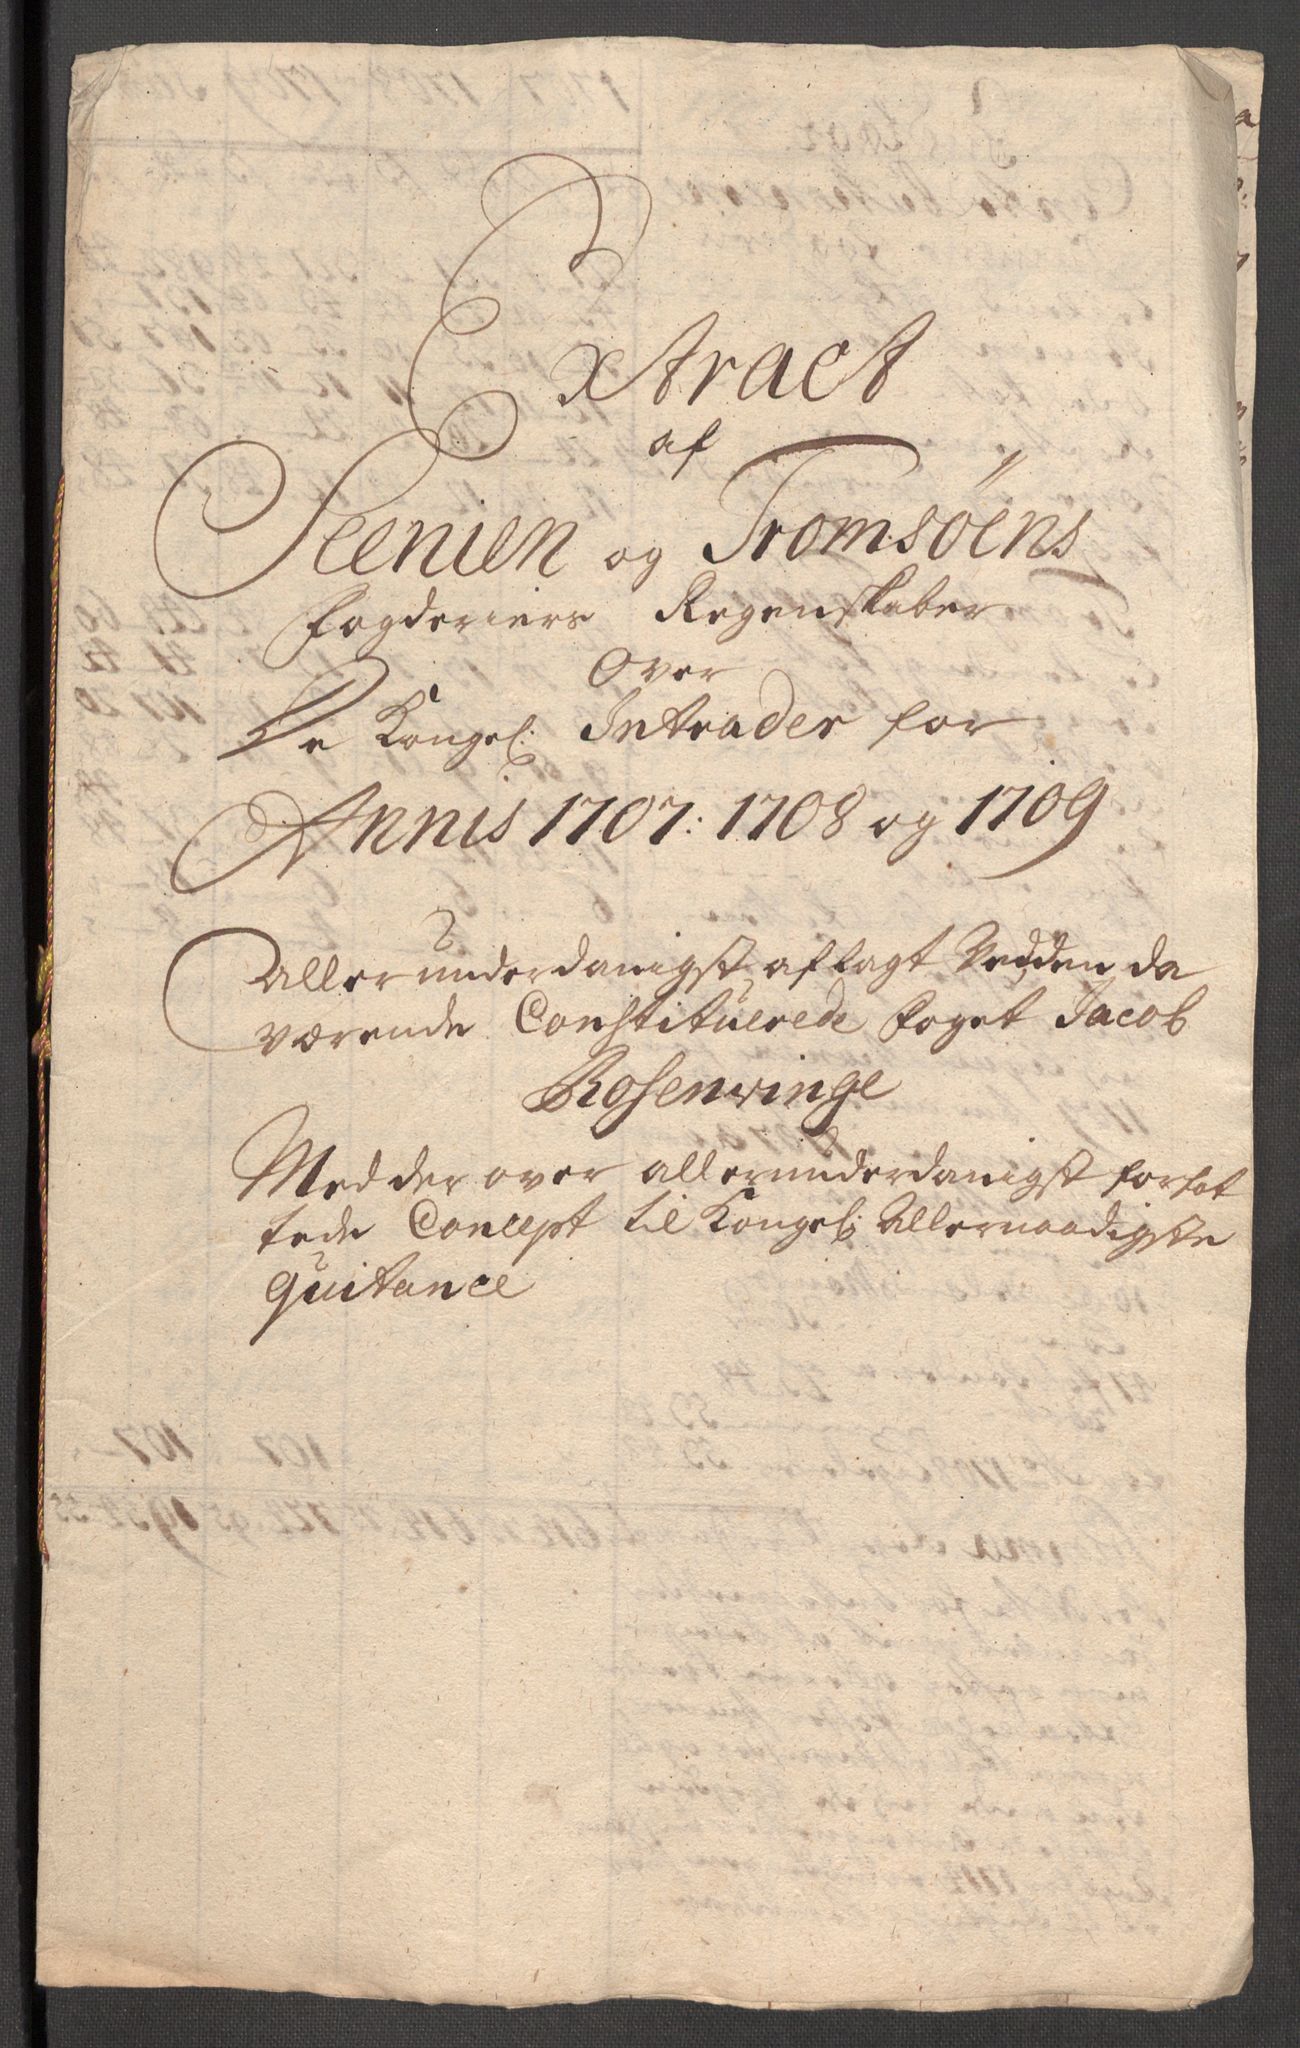 Extract
af
Seenien og Tromsöens
Fogderiers Regenskaber
Over
De Kongel: Intrader for
Annis 1707: 1708 og 1709
Allerunderdanigst aflagt Ved den da
værende Constituerede foget Jacob
Rosenvinge
Med der over allerunderdanigst forfat
tede Concept til Kongel: Allernaadigste
Quitance